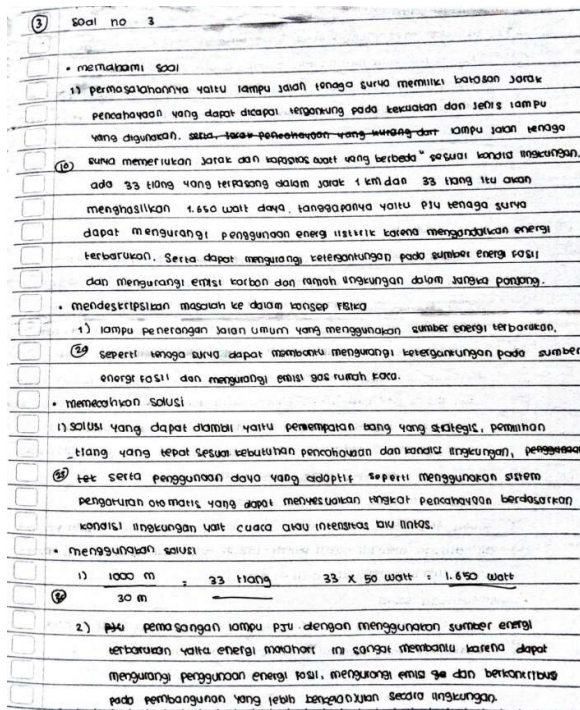 ③ soal no 3
• memahami soal
1) permasalahannya yaitu lampu jalan tenaga surya memiliki batasan jarak
pencahayaan yang dapat dicapai tergantung pada kekuatan dan jenis lampu
yang digunakan. serta, jarak pencahayaan yang kurang dari lampu jalan tenaga
⑩ surya memerlukan jarak dan kapasitas watt yang berbeda" sesuai kondisi lingkungan.
ada 33 tiang yang terpasang dalam jarak 1 km dan 33 tiang itu akan
menghasilkan 1.650 watt daya. tanggapanya yaitu PJU tenaga surya
dapat mengurangi penggunaan energi listrik karena mengandalkan energi
terbarukan. Serta dapat mengurangi ketergantungan pada sumber energi fosil
dan mengurangi emisi karbon dan ramah lingkungan dalam jangka panjang.
• mendeskripsikan masalah ke dalam konsep FSiKa
1) lampu penerangan jalan umum yang menggunakan sumber energi terbarukan,
⑳ seperti tenaga surya dapat membantu mengurangi ketergantungan pada sumber
energi fosil dan mengurangi emisi gas rumah kaca.
• memecahkan solusi
1) solusi yang dapat diambil yaitu penempatan tiang yang strategis, pemilihan
tiang yang tepat sesuai kebutuhan pencahayaan dan kondisi lingkungan, penggunaan
tek serta penggunaan daya yang adaptif seperti menggunakan sistem
pengaturan otomatis yang dapat menyesuaikan tingkat pencahayaan berdasarkan
kondisi lingkungan yait cuaca atau intensitas lalu lintas.
• menggunakan solusi
1) 1000 m = 33 tiang 33 x 50 watt = 1.650 watt
30 m
2) PJU pemasangan lampu PJU dengan menggunakan sumber energi
terbarukan yaitu energi matahari ini sangat membantu karena dapat
mengurangi penggunaan energi fosil, mengurangi emisi ga dan berkontribusi
pada pembangunan yang lebih berkelanjutan secara lingkungan.